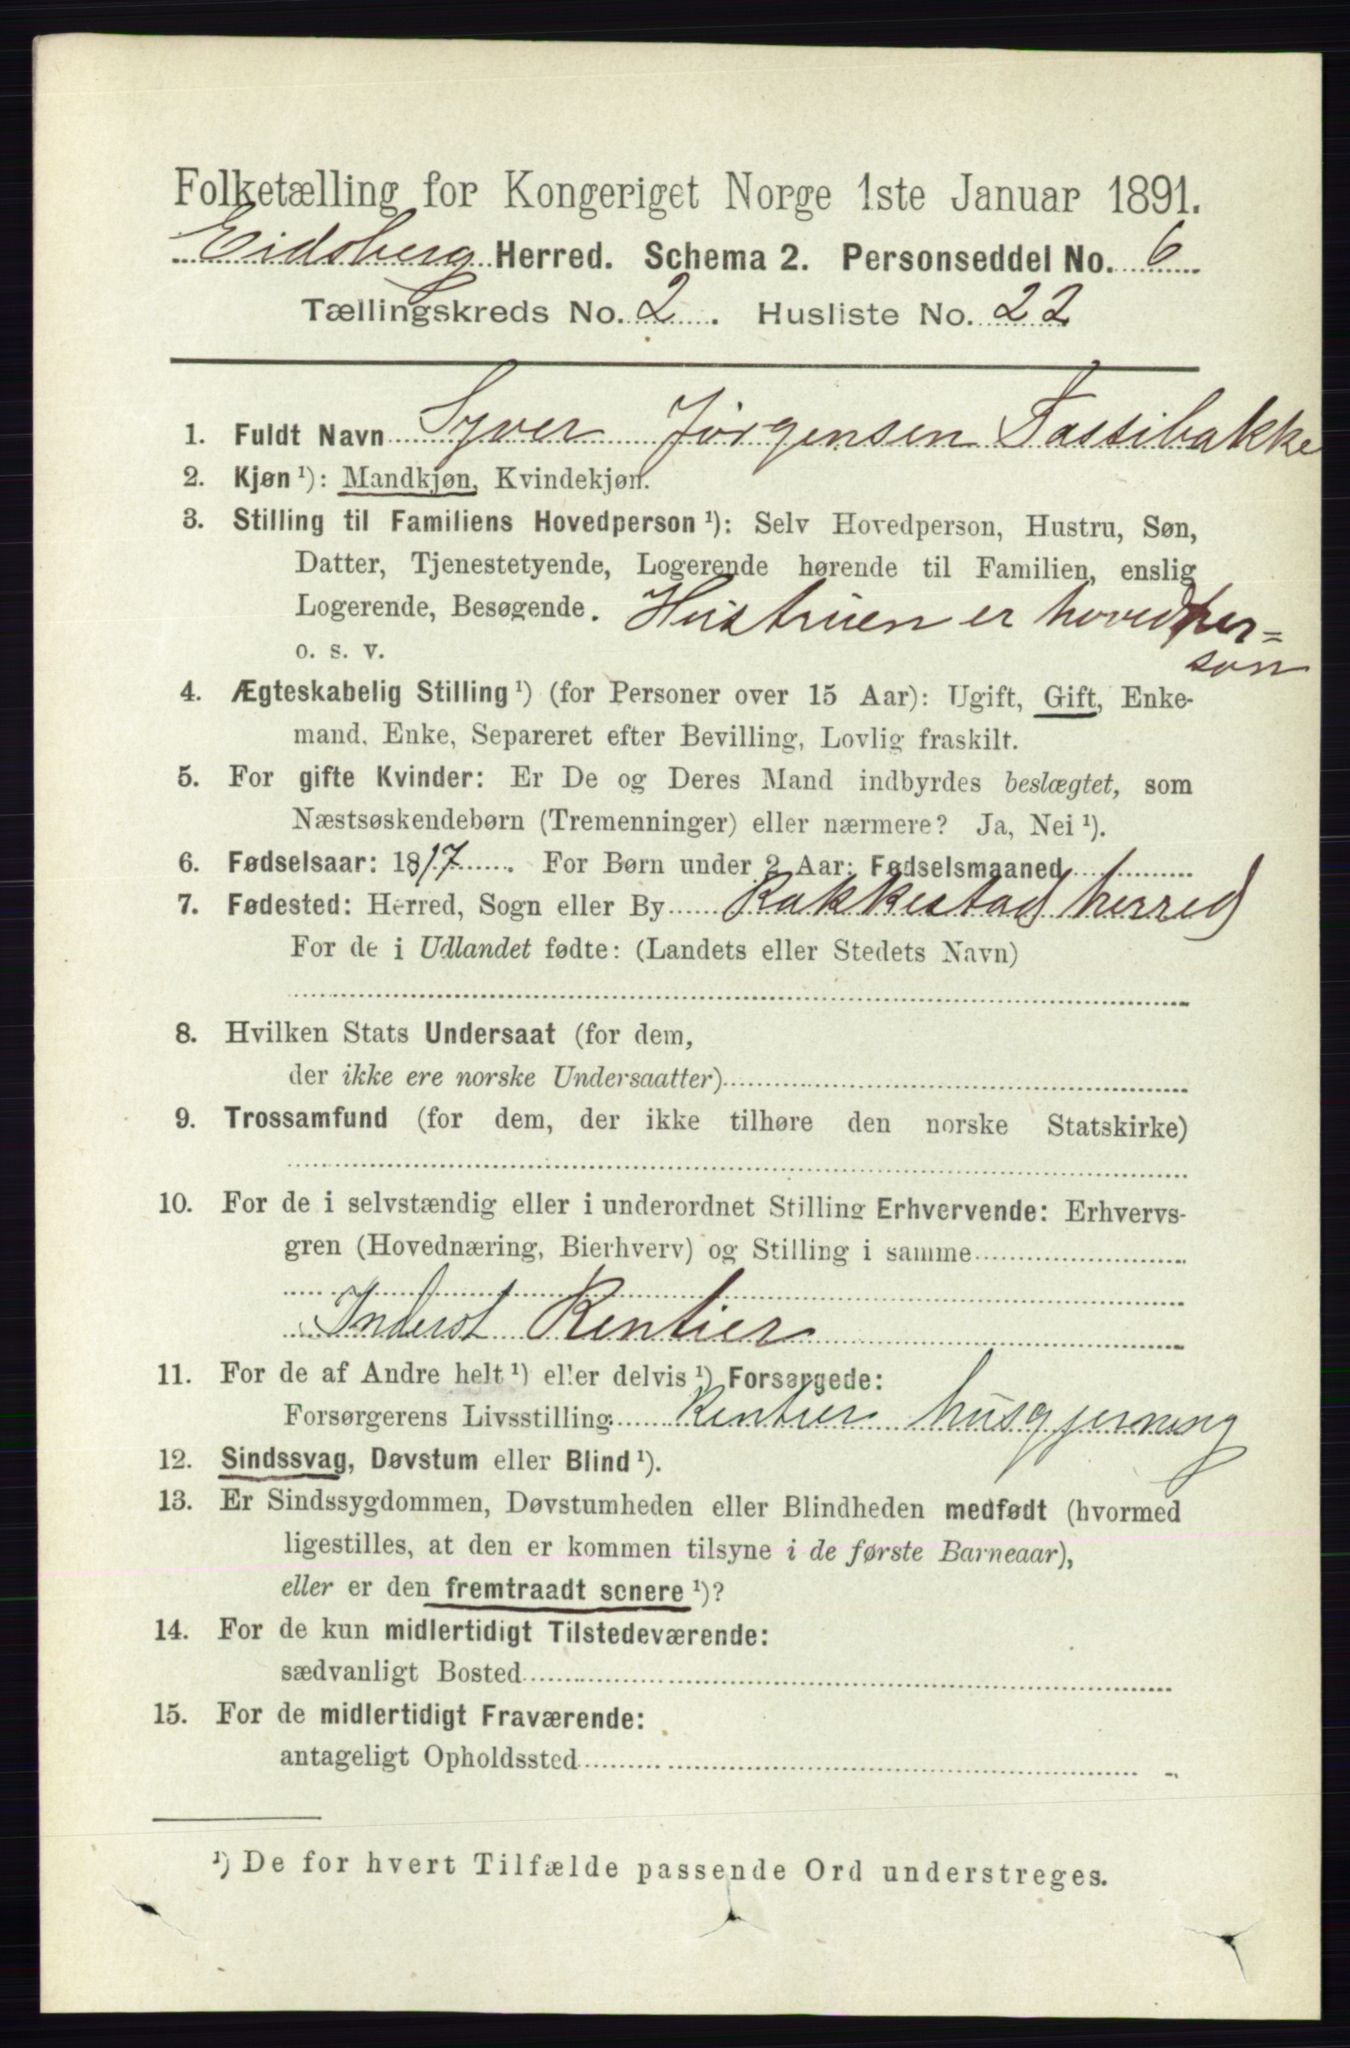 Folketælling for Kongeriget Norge 1ste Januar 1891.
Eidsberg Herred. Schema 2. Personseddel No. 6
Tællingskreds No. 2. Husliste No. 22
1. Fuldt Navn Syver Jørgensen Fossibakke
2. Kjøn ¹): Mandkjøn, Kvindekjøn.
3. Stilling til Familiens Hovedperson ¹): Selv Hovedperson, Hustru, Søn,
Datter, Tjenestetyende, Logerende hørende til Familien, enslig
Logerende, Besøgende. Hustruen er hovedper=
o. s. v. son
4. Ægteskabelig Stilling ¹) (for Personer over 15 Aar): Ugift, Gift, Enke-
mand, Enke, Separeret efter Bevilling, Lovlig fraskilt.
5. For gifte Kvinder: Er De og Deres Mand indbyrdes beslægtet, som
Næstsøskendebørn (Tremenninger) eller nærmere? Ja, Nei ¹).
6. Fødselsaar: 1817. For Børn under 2 Aar: Fødselsmaaned
7. Fødested: Herred, Sogn eller By Rakkestad herred
For de i Udlandet fødte: (Landets eller Stedets Navn)
8. Hvilken Stats Undersaat (for dem,
der ikke ere norske Undersaatter)
9. Trossamfund (for dem, der ikke tilhøre den norske Statskirke)
10. For de i selvstændig eller i underordnet Stilling Erhvervende: Erhvervs-
gren (Hovednæring, Bierhverv) og Stilling i samme
Inderst Rentier
11. For de af Andre helt ¹) eller delvis ¹) Forsørgede:
Forsørgerens Livsstilling: Rentier husgjerning
12. Sindssvag, Døvstum eller Blind ¹).
13. Er Sindssygdommen, Døvstumheden eller Blindheden medfødt (hvormed
ligestilles, at den er kommen tilsyne i de første Barneaar),
eller er den fremtraadt senere ¹)?
14. For de kun midlertidigt Tilstedeværende:
sædvanligt Bosted
15. For de midlertidigt Fraværende:
antageligt Opholdssted
¹) De for hvert Tilfælde passende Ord understreges.